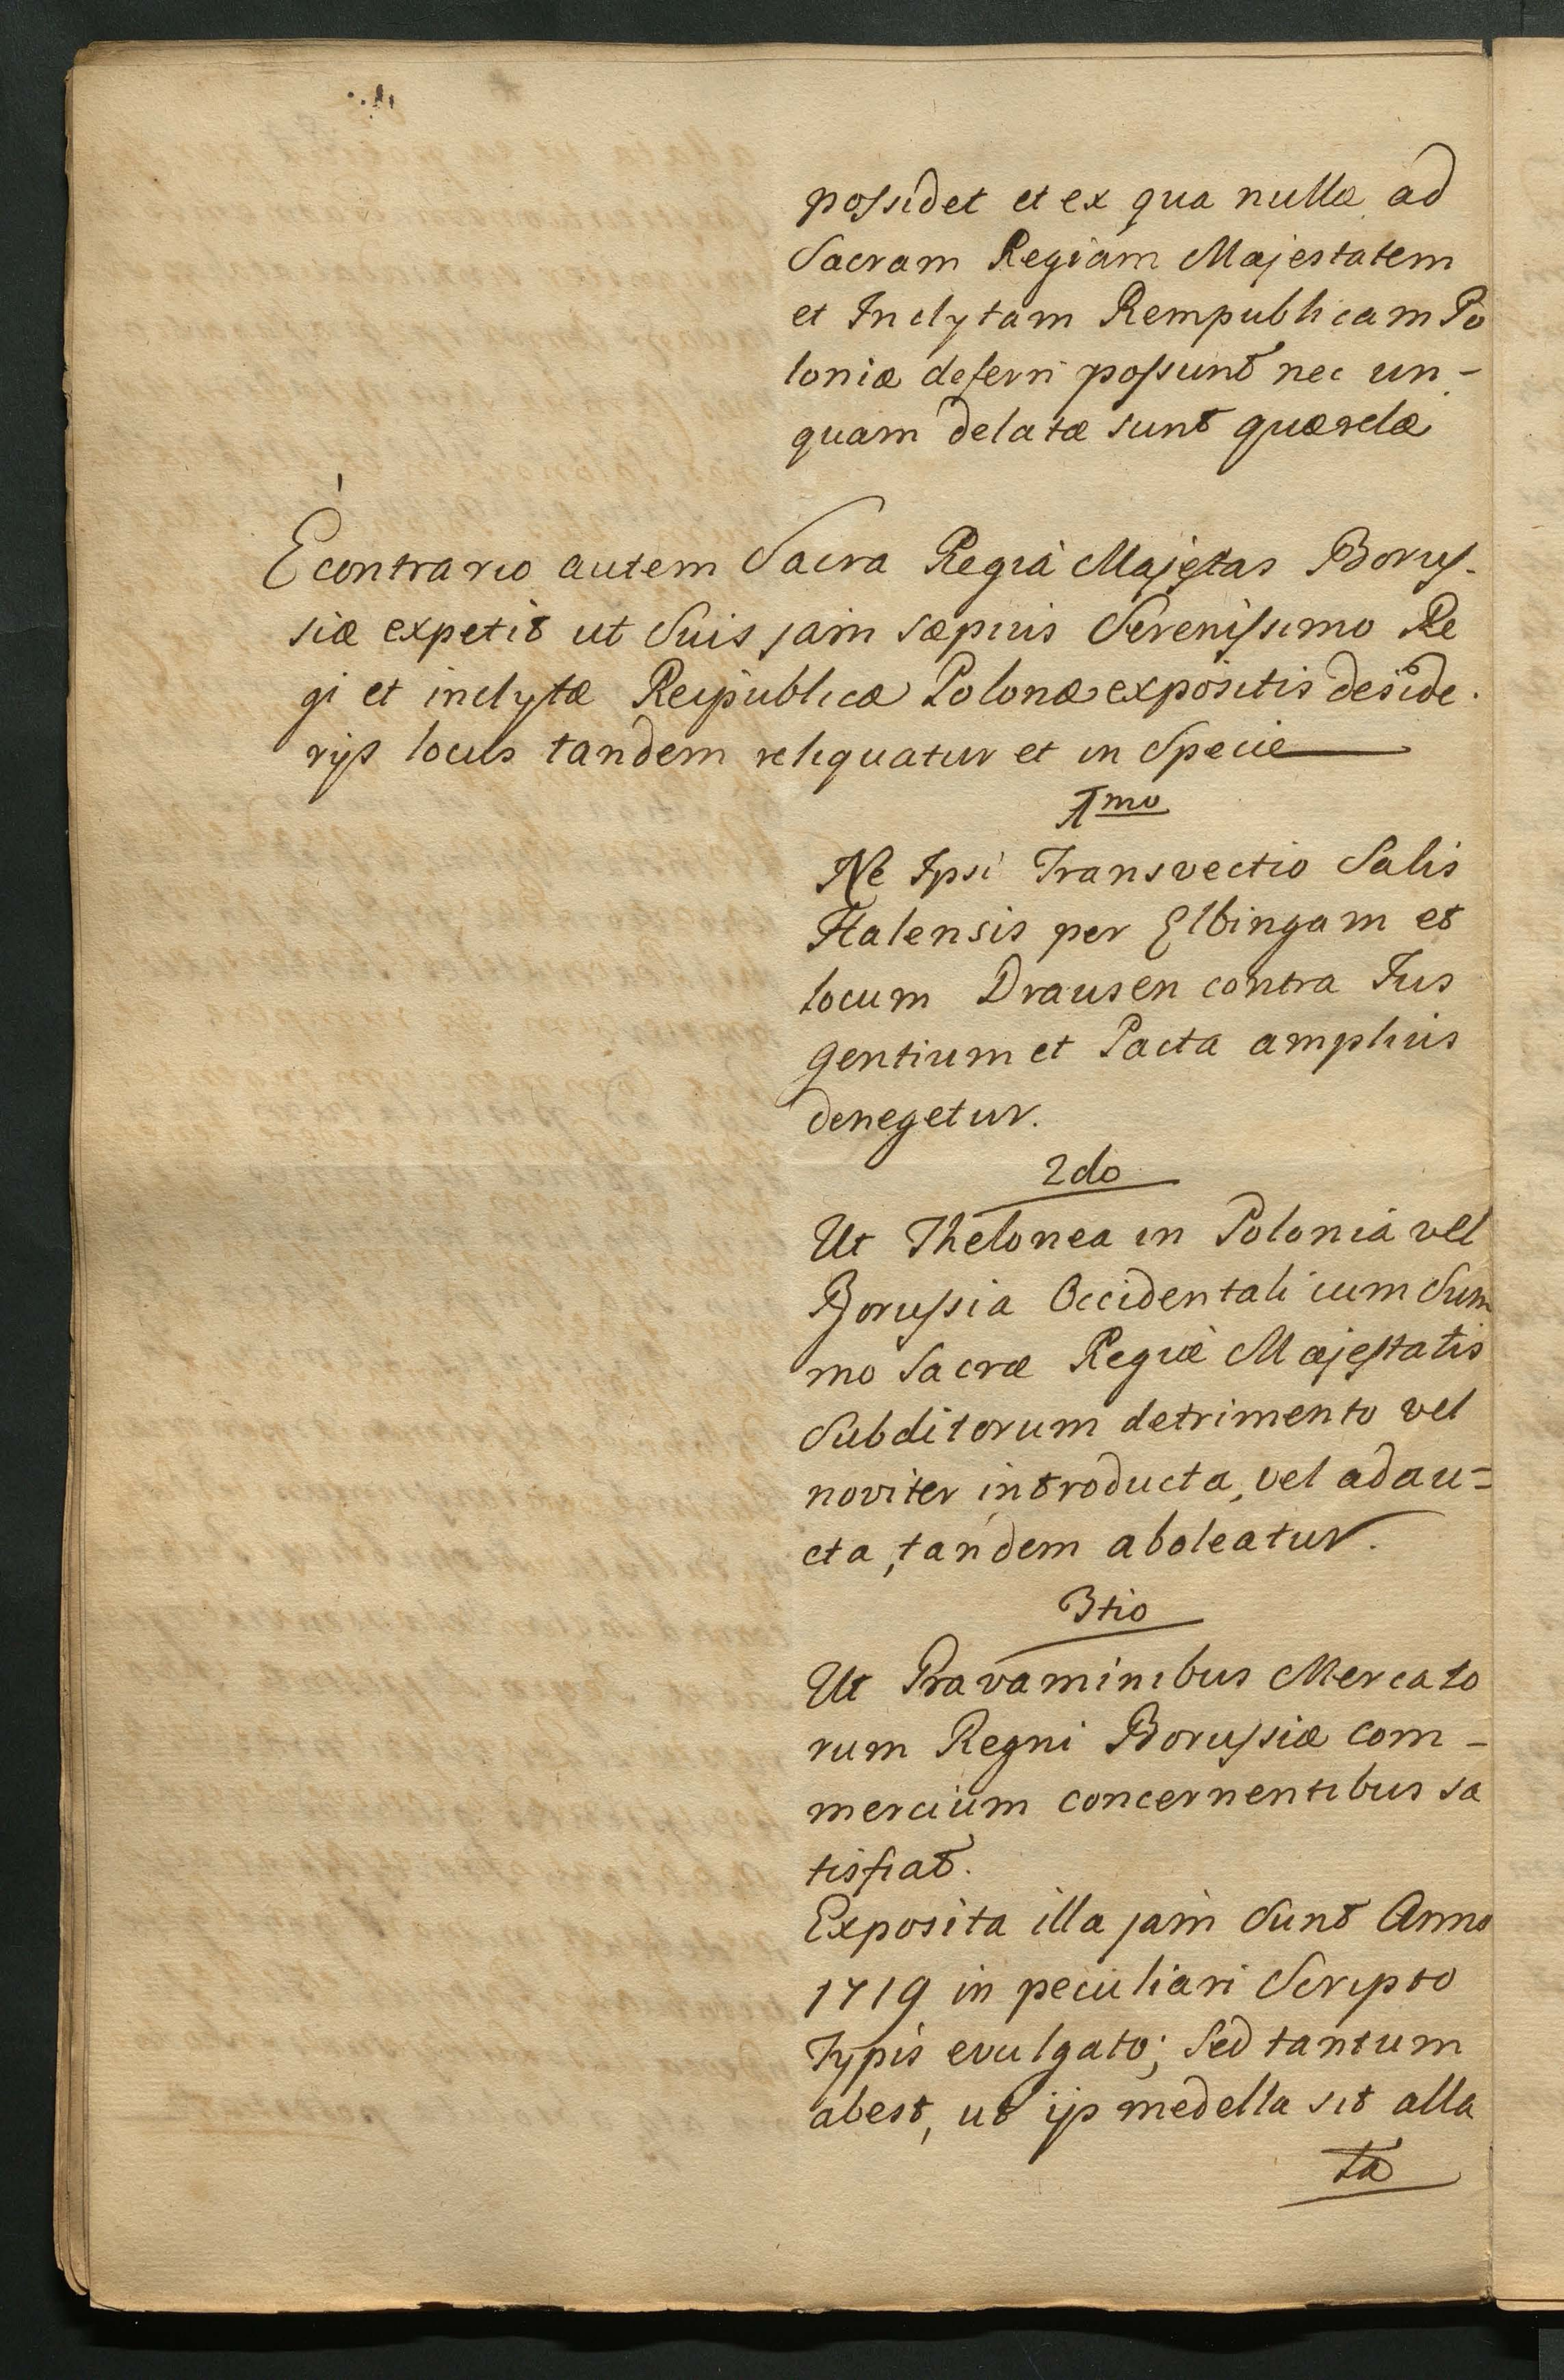 possidet et ex qua nullæ ad
Sacram Regiam Majestatem
et Inclytam Rempublicam Po
loniæ deferri possunt nec un-
quam delatæ sunt quærelæ
Econtrario autem Sacra Regia Majestas Borus-
siæ expetit ut Suis jam sæpius Serenissimo Re
gi et inclytæ Reipublicæ Polonæ expositis deside-
rijs locus tandem reliquatur et in Specie
1mo
Ne Ipsi Transvectio Salis
Halensis per Elbingam et
locum Drausen contra Jus
gentium et Pacta amplius
denegetur.
2do
Ut Thelonea in Polonia vel
Borussia Occidentali cum Sum
mo Sacræ Regiæ Majestatis
Subditorum detrimento vel
noviter introducta, vel adau=
cta, tandem aboleatur.
3tio
Ut Pravaminibus Mercato
rum Regni Borussiæ com-
mercium concernentibus sa
tisfiat.
Exposita illa jam Sunt Anno
1719 in peculiari Scripto
Typis evulgato; Sed tantum
abest, ut ijs medella sit alla
ta